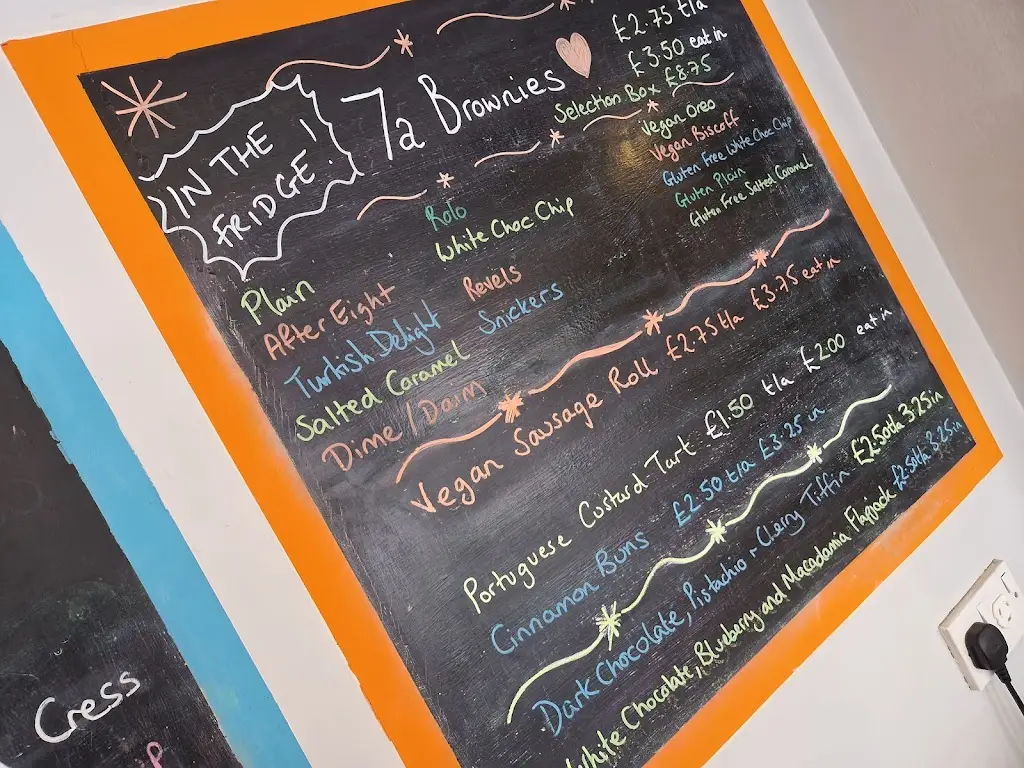 IN THE
FRIDGE!
7a Brownies
£2.75 t/a
£3.50 eat in
Selection Box £8.75
Plain
After Eight
Turkish Delight
Salted Caramel
Dime/Daim
Rolo
White Choc Chip
Revels
Snickers
Vegan Oreo
Vegan Biscoff
Gluten Free White Choc Chip
Gluten Plain
Gluten Free Salted Caramel
Vegan Sausage Roll £2.75 t/a £3.75 eat in
Portuguese Custard Tart £1.50 t/a £2.00 eat in
Cinnamon Buns £2.50 t/a £3.25 in
Dark Chocolate, Pistachio + Cherry Tiffin £2.50 t/a 3.25 in
White Chocolate, Blueberry and Macadamia Flapjack £2.50 t/a 3.25 in
Cress